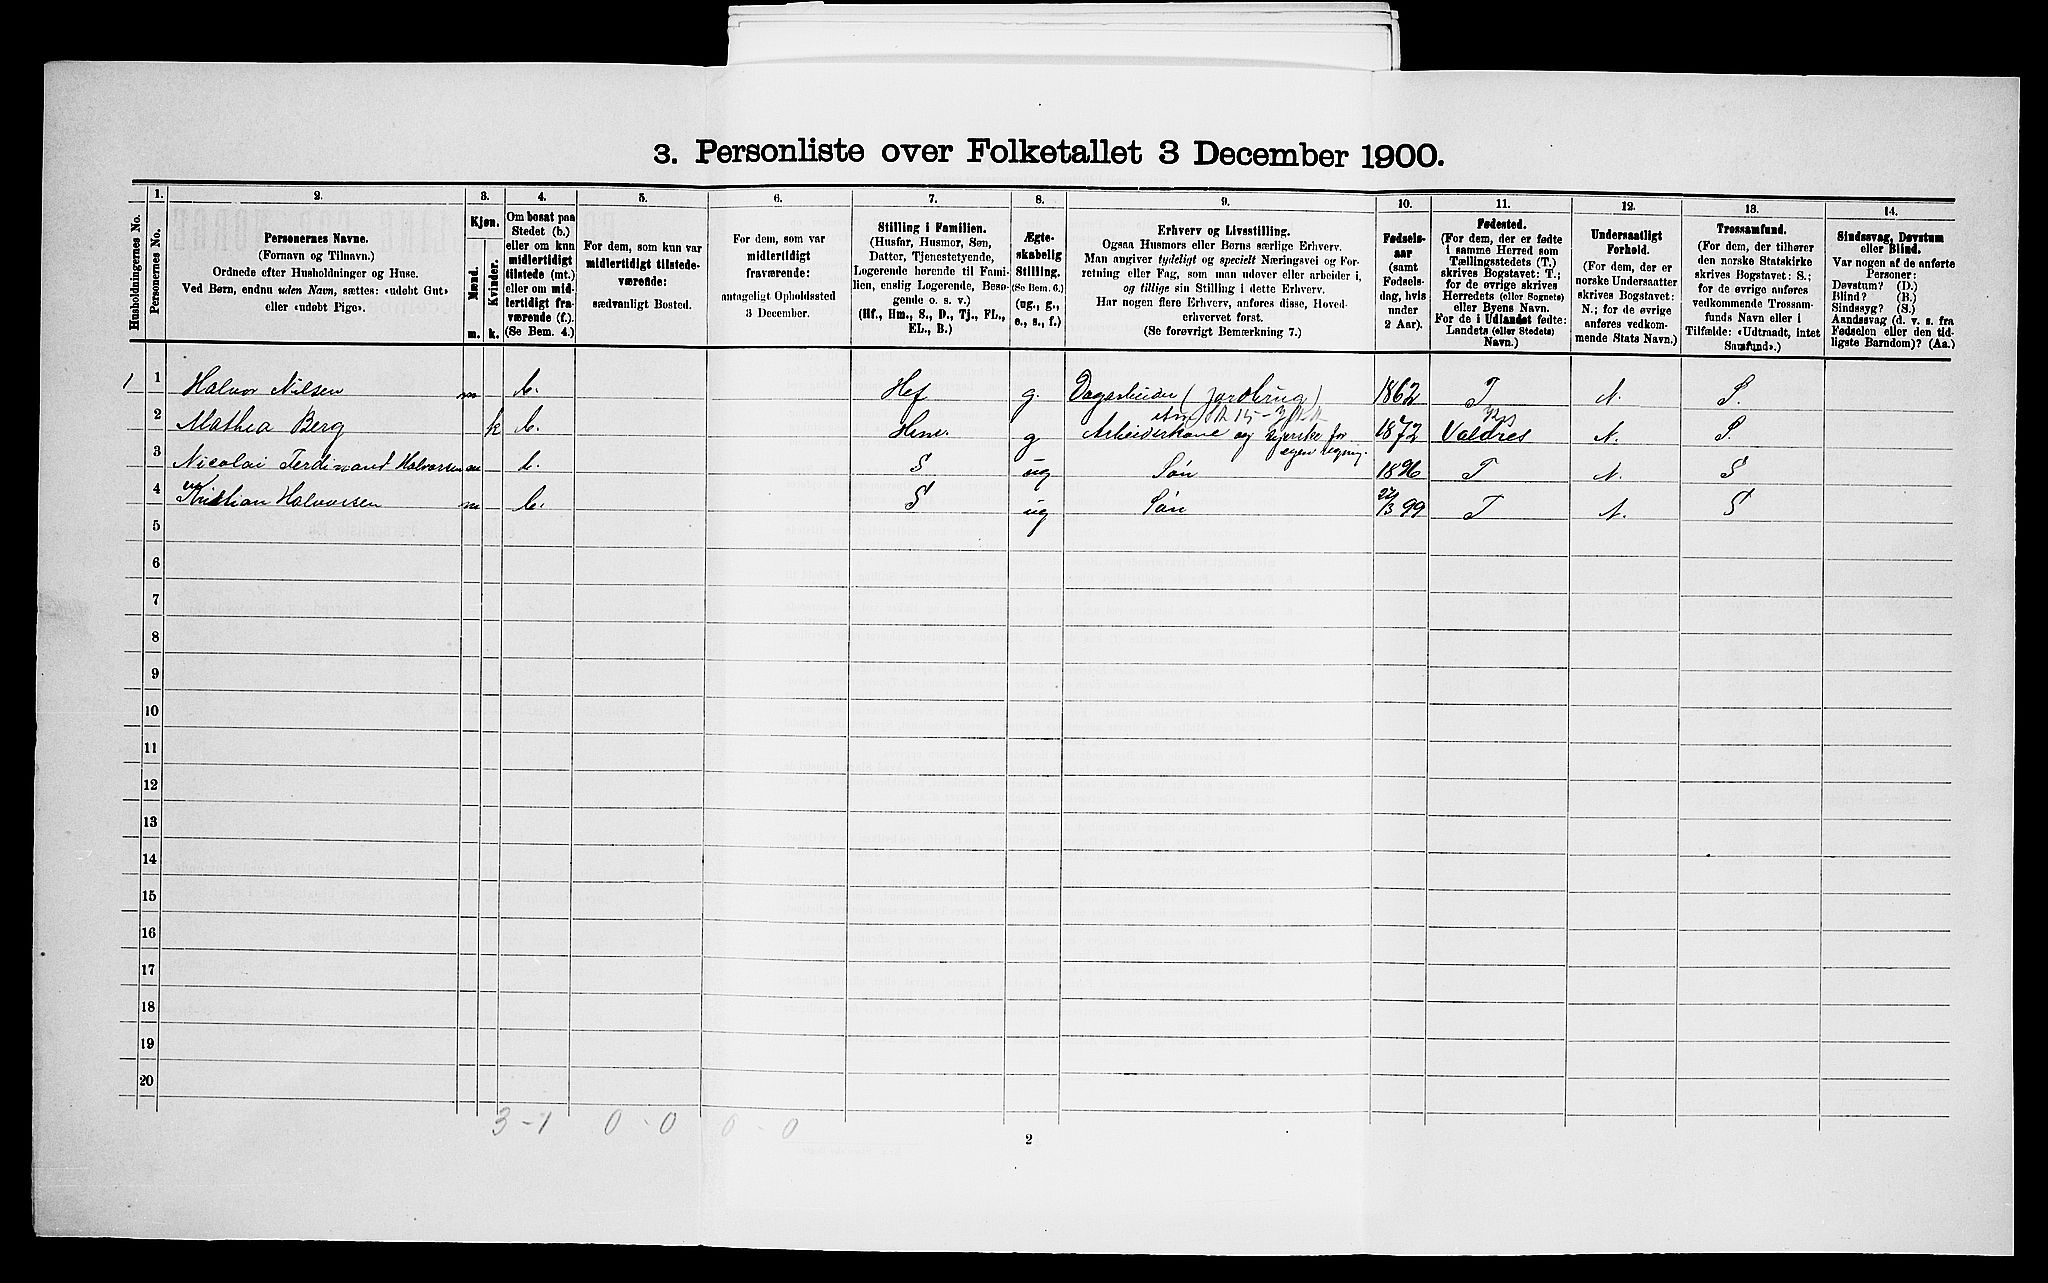 3. Personliste over Folketallet 3 December 1900.
Husholdningernes No.
1.
Personernes No.
2.
Personernes Navne.
(Fornavn og Tilnavn.)
Ordnede efter Husholdninger og Huse.
Ved Børn, endnu uden Navn, sættes: «udøbt Gut»
eller «udøbt Pige».
3.
Kjøn.
Mænd.
Kvinder.
m.
k.
4.
Om bosat paa
Stedet (b.)
eller om kun
midlertidigt
tilstede (mt.)
eller om mid-
lertidigt fra-
værende (f.)
(Se Bem. 4.)
5.
For dem, som kun var
midlertidigt tilstede-
værende:
sædvanligt Bosted.
6.
For dem, som var
midlertidigt
fraværende:
antageligt Opholdssted
3 December.
7.
Stilling i Familien.
(Husfar, Husmor, Søn,
Datter, Tjenestetyende,
Logerende hørende til Fami-
lien, enslig Logerende, Besø-
gende o. s. v.)
(Hf., Hm., S., D., Tj., FL.,
EL., B.)
8.
Ægte-
skabelig
Stilling.
(Se Bem. 6.)
(ug., g.,
e., s., f.)
9.
Erhverv og Livsstilling.
Ogsaa Husmors eller Børns særlige Erhverv.
Man angiver tydeligt og specielt Næringsvei og For-
retning eller Fag, som man udøver eller arbeider i,
og tillige sin Stilling i dette Erhverv.
Har nogen flere Erhverv, anføres disse, Hoved-
erhvervet først.
(Se forøvrigt Bemærkning 7.)
10.
Fødsels-
aar
(samt
Fødsels-
dag, hvis
under
2 Aar).
11.
Fødested.
(For dem, der er fødte
i samme Herred som
Tællingsstedets (T.)
skrives Bogstavet: T.;
for de øvrige skrives
Herredets (eller Sognets)
eller Byens Navn.
For de i Udlandet fødte:
Landets (eller Stedets)
Navn.)
12.
Undersaatligt
Forhold.
(For dem, der er
norske Undersaatter
skrives Bogstavet:
N.; for de øvrige
anføres vedkom-
mende Stats Navn.)
13.
Trossamfund.
(For dem, der tilhører
den norske Statskirke
skrives Bogstavet: S.;
for de øvrige anføres
vedkommende Trossam-
funds Navn eller i
Tilfælde: «Udtraadt, intet
Samfund».)
14.
Sindssvag, Døvstum
eller Blind.
Var nogen af de anførte
Personer:
Døvstum? (D.)
Blind? (B.)
Sindssyg? (S.)
Aandssvag (d. v. s. fra
Fødselen eller den tid-
ligste Barndom)? (Aa.)
1 1 Halvor Nilsen m b. Hf g. Dagarbeider (Jordbrug) 1862 T N. S.
2 Mathea Berg k b. Hm. g Arbeiderkone og Gjerske for egen regning. 1872 Valdres N. S.
3 Nicolai Ferdinand Halvorsen m b. S ug Søn 1896 T N. S
4 Kristian Halvorsen m b. S ug Søn 27/3 99 T N. S
5
6
7
8
9
10
11
12
13
14
15
16
17
18
19
20
3 - 1 0 - 0 0 - 0
2